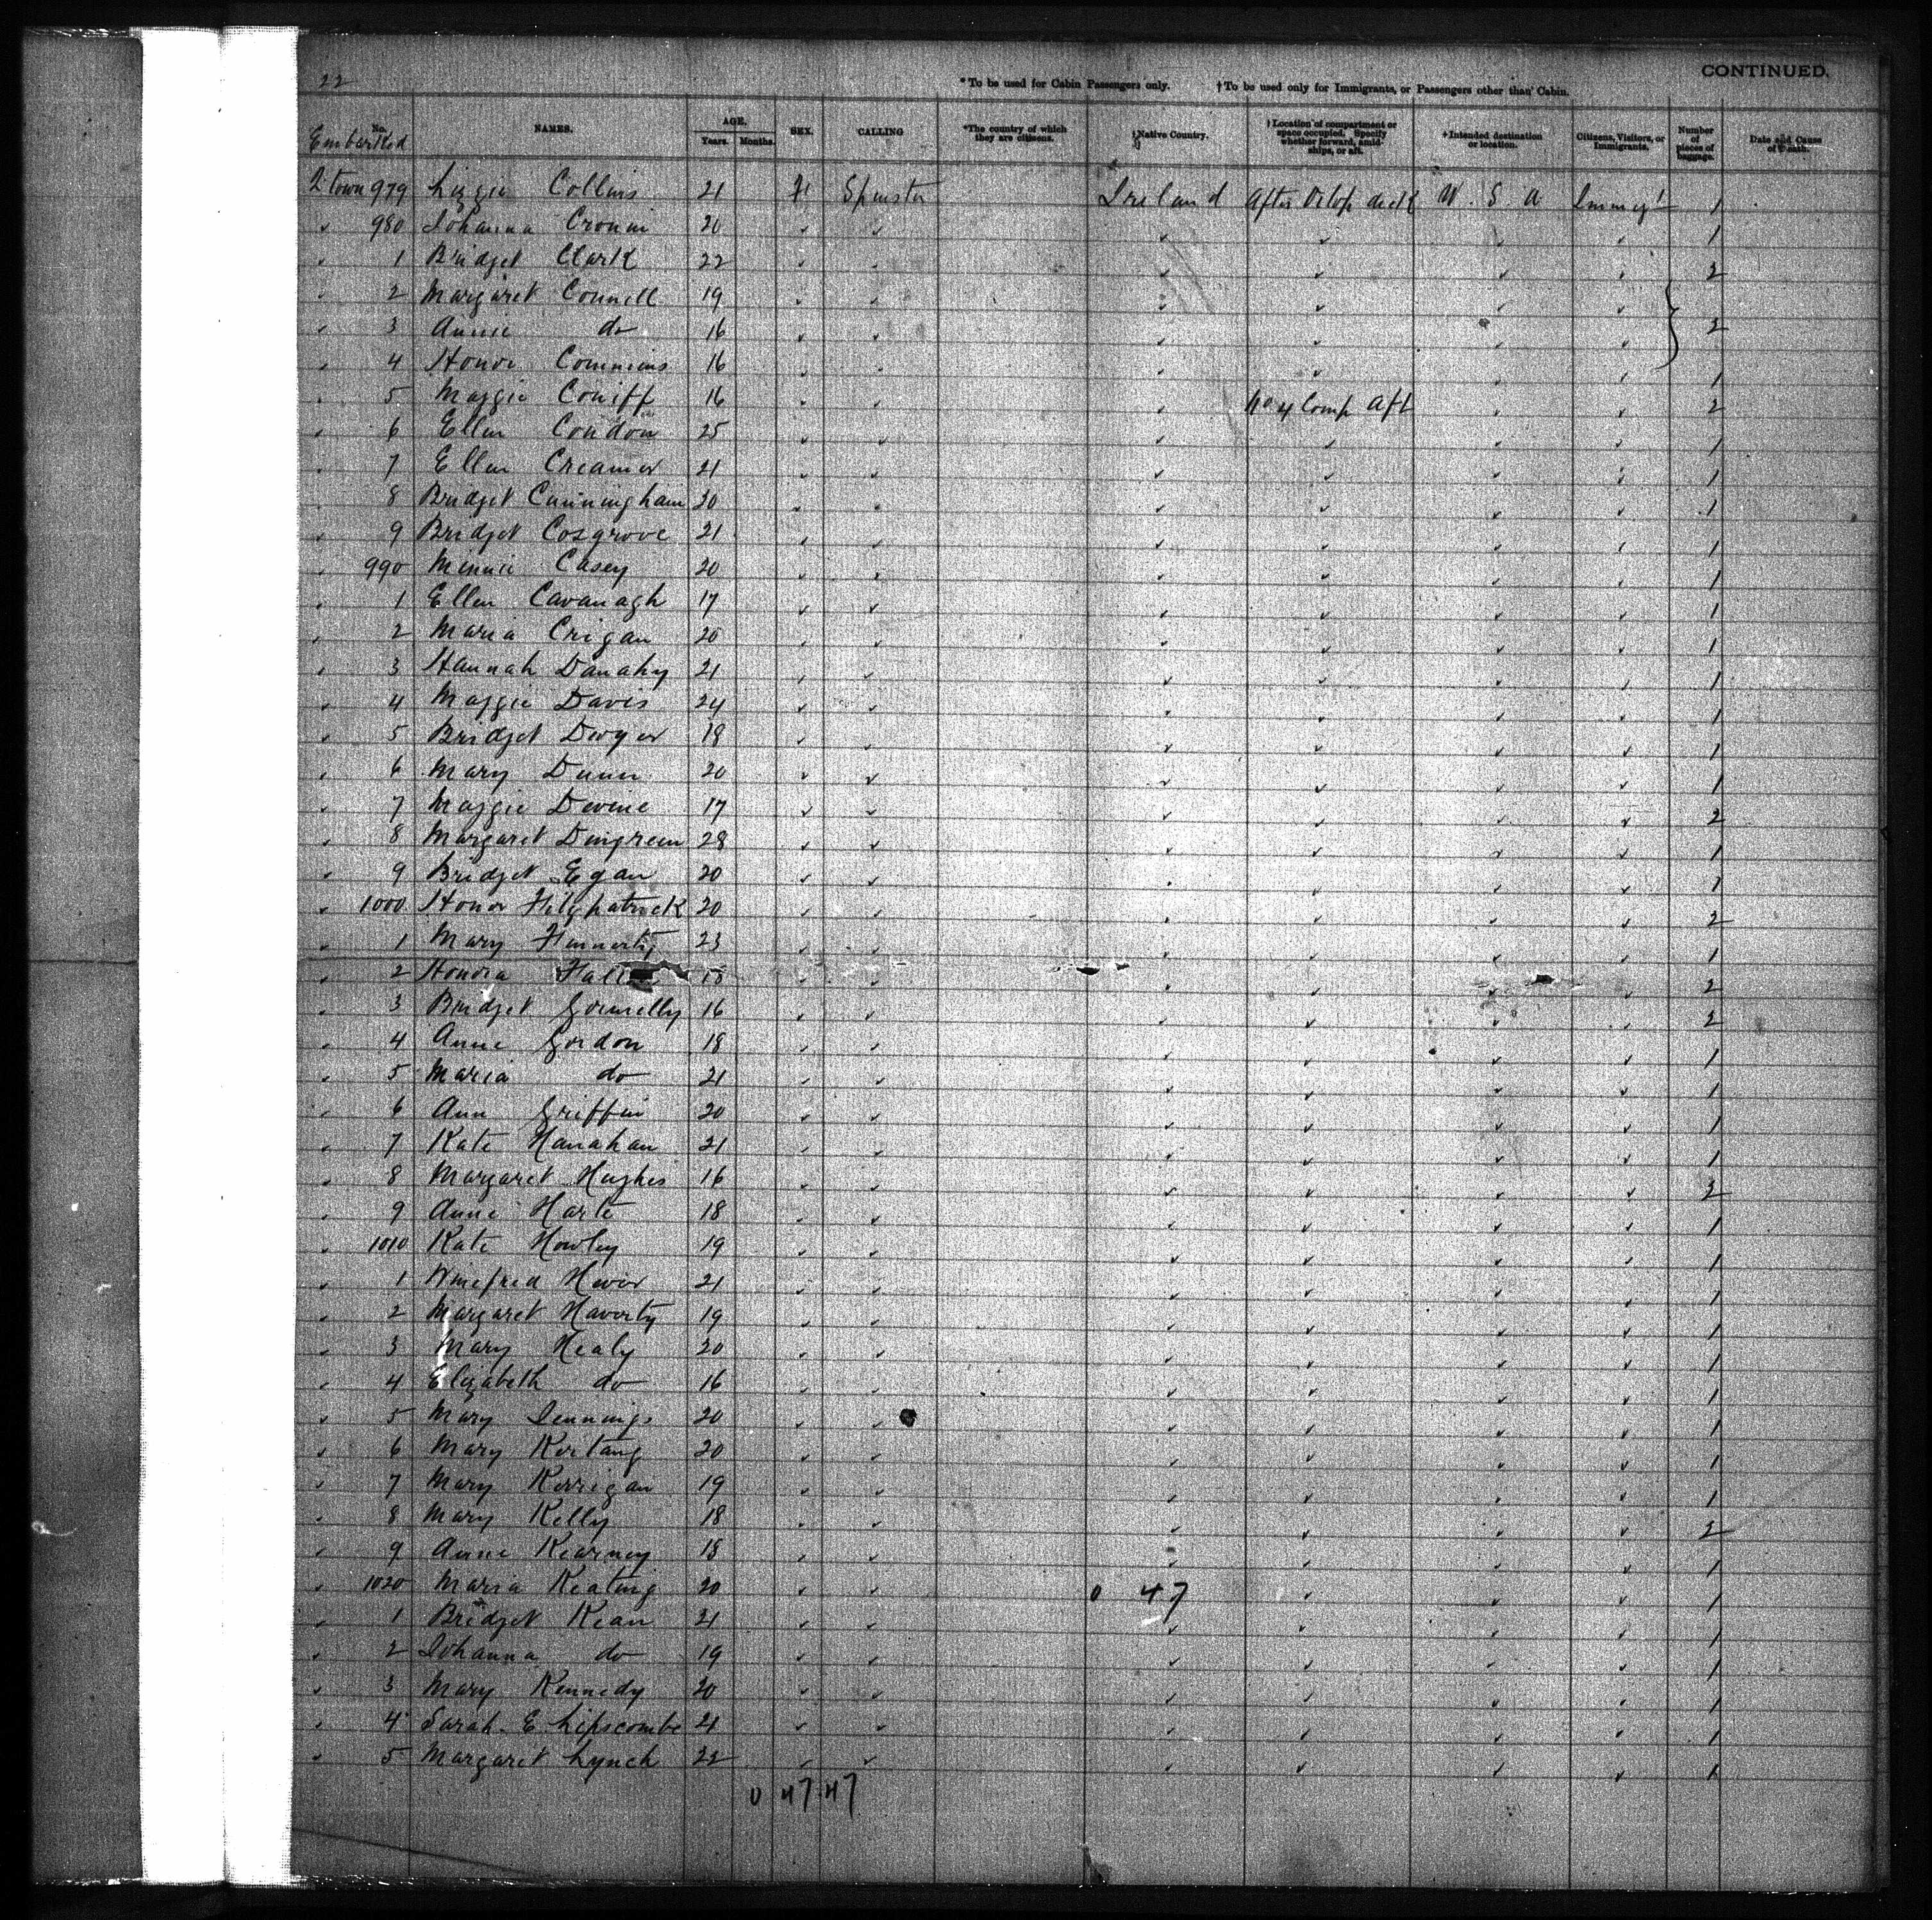 CONTINUED.
22
*To be used for Cabin Passengers only. †To be used only for Immigrants, or Passengers other than Cabin.
No. Embarked NAMES. AGE. Years. Months. SEX. CALLING *The country of which they are citizens. †Native Country. †Location of compartment or space occupied. Specify whether forward, amidships, or aft. †Intended destination or location. Citizens, Visitors, or Immigrants. Number of pieces of baggage. Date and Cause of Death.
Q.town 979 Lizzie Collins 21 F Spinster Ireland After Orlop deck U.S.A Immigt 1
980 Johanna Cronin 20 1
1 Bridget Clark 22 2
2 Margaret Connell 19
3 Annie do 16 2
4 Honor Commins 16 1
5 Maggie Coniff 16 No 4 Comp Aft 2
6 Ellen Condon 25 1
7 Ellen Creamer 21 1
8 Bridget Cunningham 20 1
9 Bridget Cosgrove 21 1
990 Minnie Casey 20 1
1 Ellen Cavanagh 17 1
2 Maria Crigan 20 1
3 Hannah Danahy 21 1
4 Maggie Davis 24 1
5 Bridget Dwyer 18 1
6 Mary Dunn 20 1
7 Maggie Devine 17 2
8 Margaret 28 1
9 Bridget Egan 20 1
1000 Honor Fitzpatrick 20 2
1 Mary Finnerty 23 1
2 Honora 18 2
3 Bridget Gormelly 16 2
4 Anne Gordon 18 1
5 Maria do 21 1
6 Ann Griffin 20 1
7 Kate Hanahan 21 1
8 Margaret Hughes 16 2
9 Annie Harte 18 1
1010 Kate Howley 19 1
1 Winefred 21 1
2 Margaret Haverty 19 1
3 Mary Healy 20 1
4 Elizabeth do 16 1
5 Mary Jennings 20 1
6 Mary 20 1
7 Mary Kerrigan 19 1
8 Mary Kelly 18 2
9 Anne Kearney 18 1
1020 Maria Keating 20 0 47 1
1 Bridget Kean 21 1
2 Johanna do 19 1
3 Mary Kennedy 20 1
4 Sarah E Lipscombe 21 1
5 Margaret Lynch 22 1
0 47 47